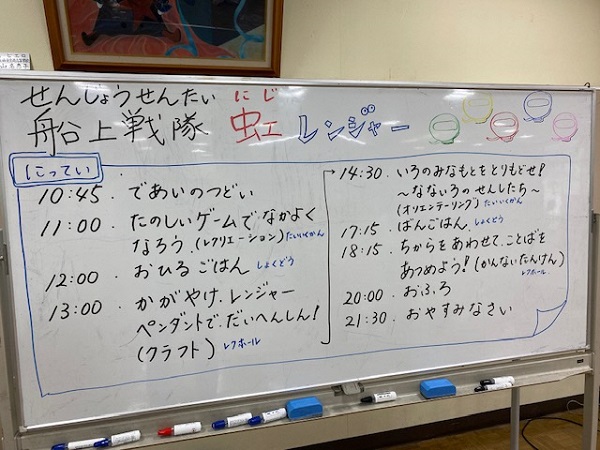 せんしょうせんたい にじ
船上戦隊 虹 レンジャー
にってい
10:45 であいのつどい
11:00 たのしいゲームで、なかよく
なろう (レクリエーション) たいいくかん
12:00 おひるごはん しょくどう
13:00 かがやけ、レンジャー
ペンダントで、だいへんしん!
(クラフト) レクホール
14:30 いろのみなもとをとりもどせ!
〜なないろのせんしたち〜
(オリエンテーリング) たいいくかん
17:15 ばんごはん しょくどう
18:15 ちからをあわせて、ことばを
あつめよう! (かんないたんけん)
レクホール
20:00 おふろ
21:30 おやすみなさい